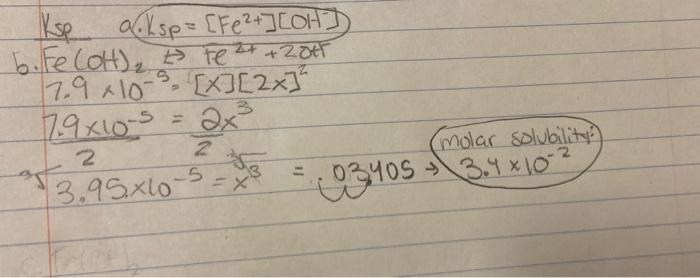 Ksp a. Ksp = [Fe²⁺][OH⁻]
b. Fe(OH)₂ ⇔ Fe²⁺ + 2OH
7.9 x10⁻⁵ = [X][2x]²
7.9x10⁻⁵ = 2x³
2 2
³√3.95x10⁻⁵ = ³√x³ = .03405 → molar solubility: 3.4 x 10⁻²